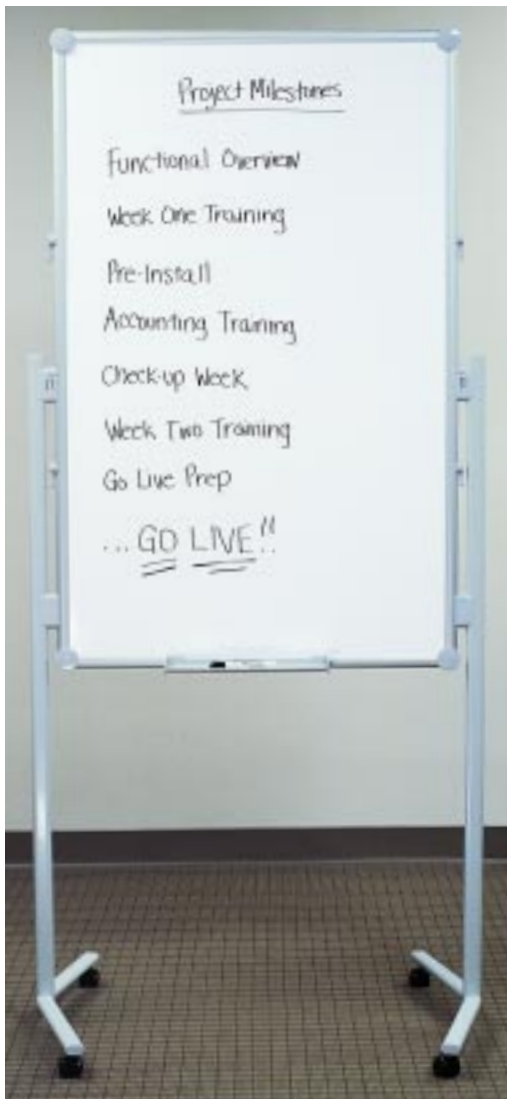 Project Milestones
Functional Overview
Week One Training
Pre-Install
Accounting Training
Check-up Week
Week Two Training
Go Live Prep
... GO LIVE!!